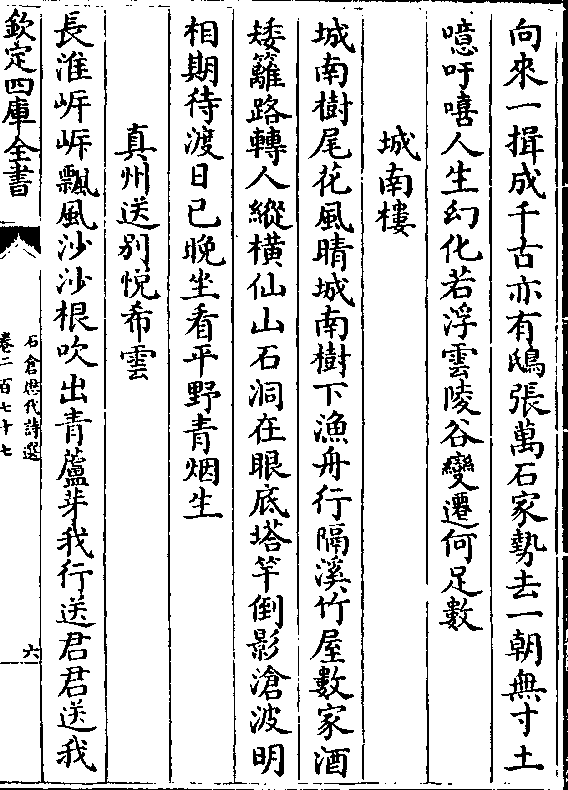 向來一揖成千古亦有鴟張萬石家勢去一朝無寸土
噫吁嘻人生幻化若浮雲陵谷變遷何足數
城南樓
城南樹尾花風晴城南樹下漁舟行隔溪竹屋數家酒
矮籬路轉人縱橫仙山石洞在眼底塔竿倒影滄波明
相期待渡日已晚坐看平野青烟生
真州送别悦希雲
長淮㟁㟁飄風沙沙根吹出青蘆芽我行送君君送我
欽定四庫全書
石倉歷代詩選
卷二百七十七
六